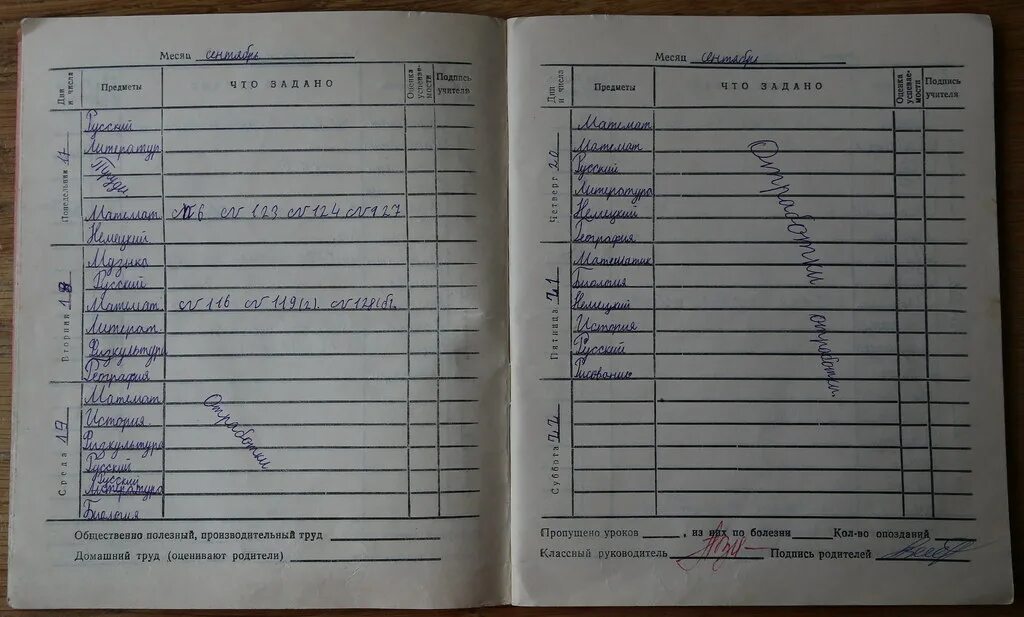 Месяц сентябрь
Дни и числа Предметы ЧТО ЗАДАНО Оценка успеваемости Подпись учителя
Понедельник 17
Русский
Литератур
Труды
Математ. № 123 № 124 № 127
Немецкий
Вторник 18
Музыка
Русский
Математ. № 116 № 119(г). № 128(б).
Литерат.
Физкультура
География
Среда 19
Математ.
История.
Физкультура
Русский
Русский
Литература
Биология
Отработки
Общественно полезный, производительный труд
Домашний труд (оценивают родители)
Месяц сентябрь
Дни и числа Предметы ЧТО ЗАДАНО Оценка успеваемости Подпись учителя
Четверг 20
Математ.
Математ
Русский
Литература
Немецкий
География
Отработки
Пятница 21
Математик
Биология
Немецкий
История
Русский
Рисование
отработки.
Суббота 22
Пропущено уроков , из них по болезни Кол-во опозданий
Классный руководитель Подпись родителей